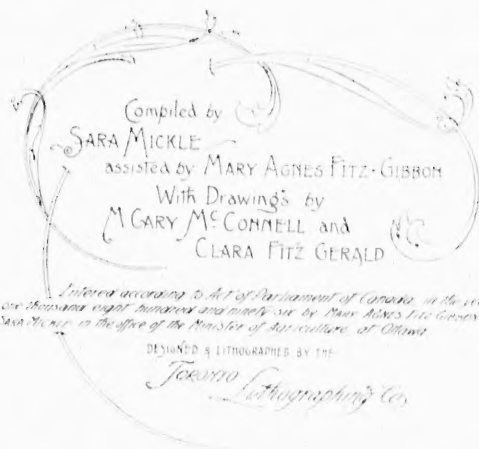 Compiled by
SARA MICKLE
assisted by MARY AGNES FITZ-GIBBON
With Drawings by
M GARY McCONNELL and
CLARA FITZ GERALD
Entered according to Act of Parliament of Canada, in the
one thousand eight hundred and ninety-six by MARY AGNES FITZ GIBBON
SARA MICKLE in the office of the Minister of Agriculture at Ottawa
DESIGNED & LITHOGRAPHED BY THE
TORONTO Lithographing Co